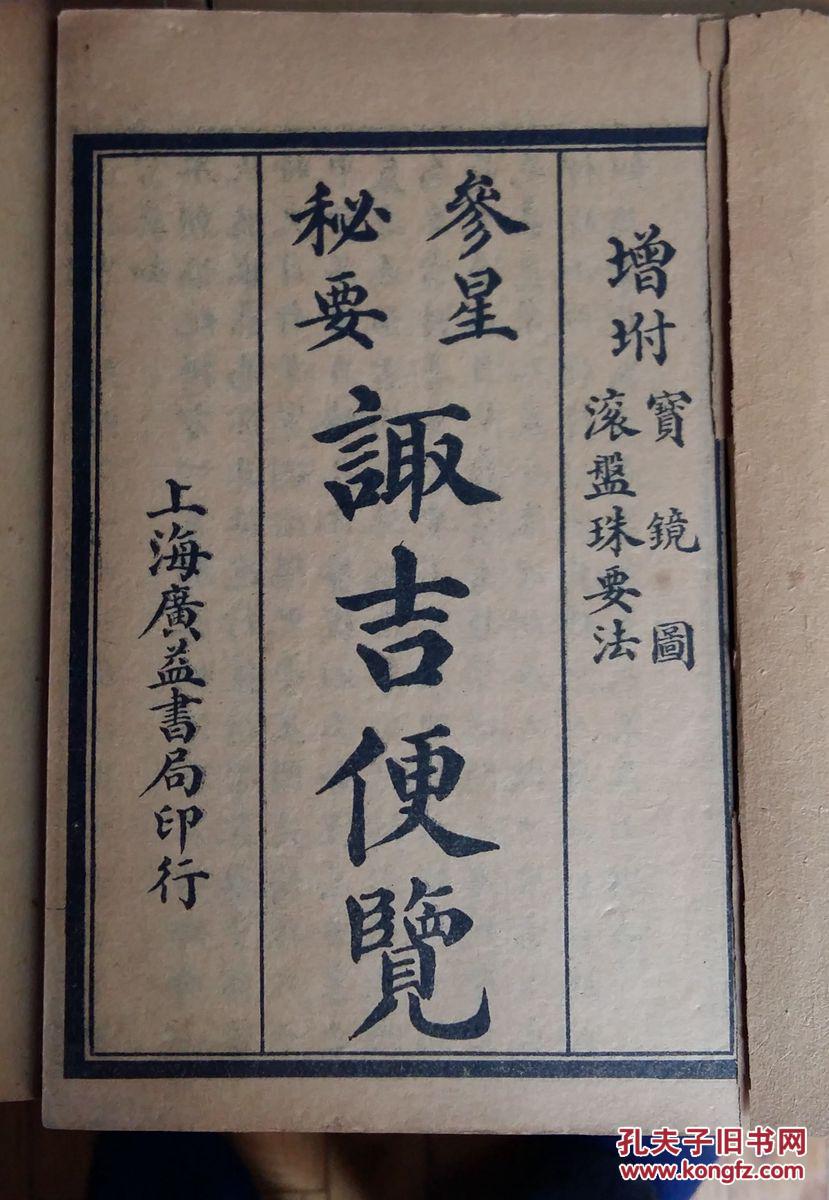 增坿
寶鏡圖
滚盤珠要法
參星
秘要
諏吉便覽
上海廣益書局印行
孔夫子旧书网
www.kongfz.com